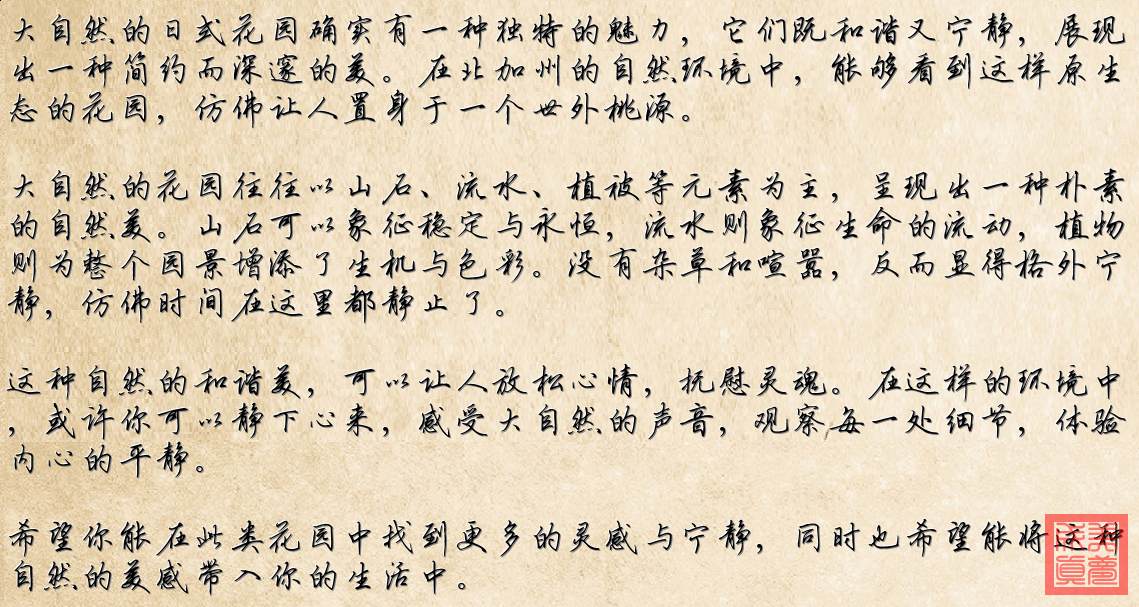 大自然的日式花园确实有一种独特的魅力，它们既和谐又宁静，展现
出一种简约而深邃的美。在北加州的自然环境中，能够看到这样原生
态的花园，仿佛让人置身于一个世外桃源。
大自然的花园往往以山石、流水、植被等元素为主，呈现出一种朴素
的自然美。山石可以象征稳定与永恒，流水则象征生命的流动，植物
则为整个园景增添了生机与色彩。没有杂草和喧嚣，反而显得格外宁
静，仿佛时间在这里都静止了。
这种自然的和谐美，可以让人放松心情，抚慰灵魂。在这样的环境中
，或许你可以静下心来，感受大自然的声音，观察每一处细节，体验
内心的平静。
希望你能在此类花园中找到更多的灵感与宁静，同时也希望能将这种
自然的美感带入你的生活中。